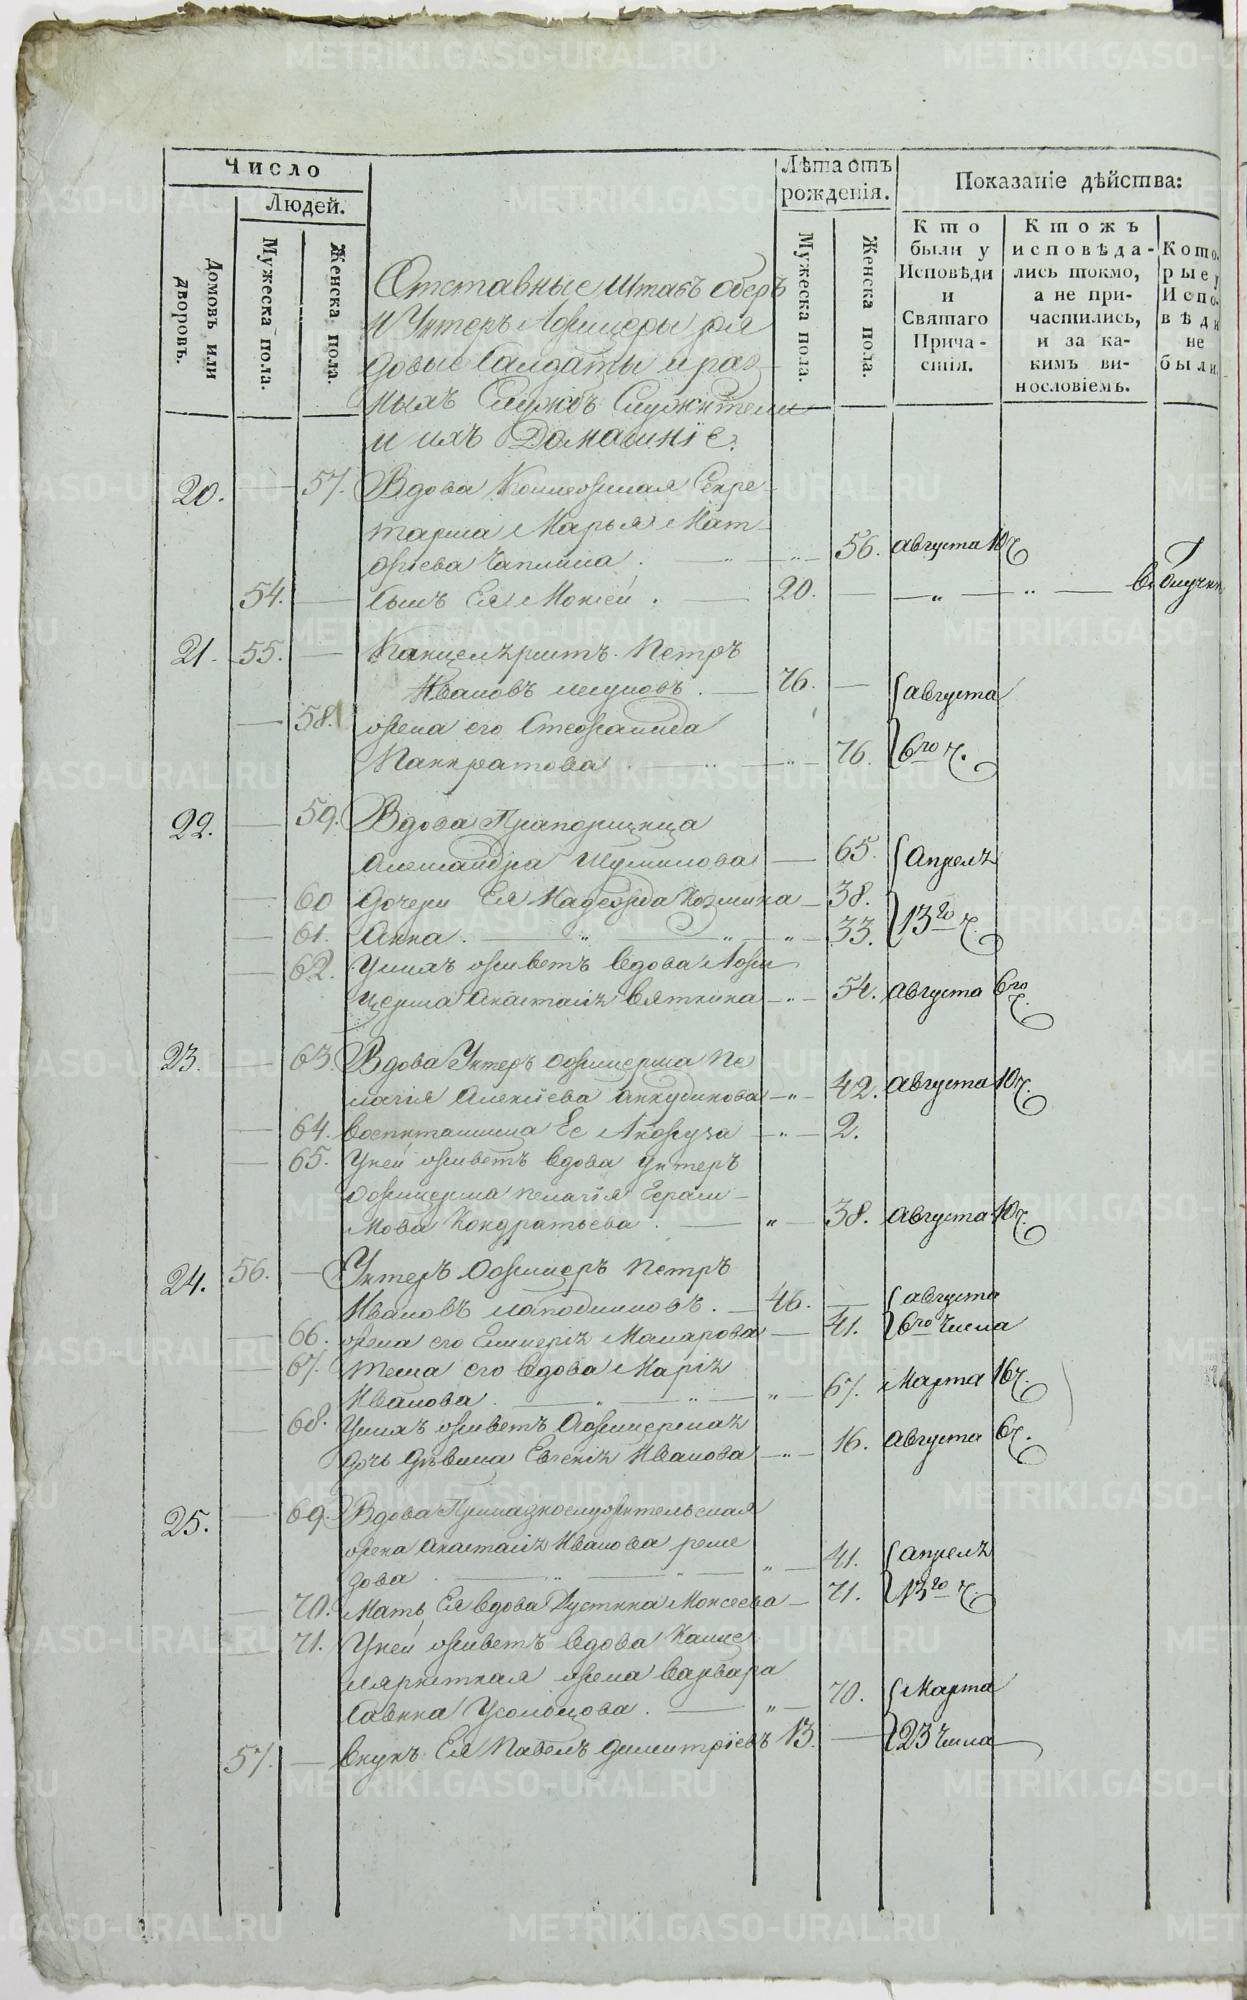 Число
Людей.
Домовъ или дворовъ.
Мужеска пола.
Женска пола.
Лѣта отъ рожденія.
Мужеска пола.
Женска пола.
Показаніе дѣйства:
Кто были у Исповѣди и Святаго Причастія.
Ктожъ исповѣдались токмо, а не причастились, и за какимъ винословіемъ.
Которые у Исповѣди не были.
Отставные Штабъ оберъ
и Унтеръ Афицеры ря
довые Салдаты и раз
ныхъ Службъ Служители
и ихъ Домашніе.
20. — 57. Вдова Коллежская Секре-
тарша Марья Мат-
фѣева Чаплина . 56. августа 10 ч
54. — сынъ Ея Мокіей . 20. — „ — „ — Вотлучки
21. 55. — Канцеляристъ Петръ
Ивановъ . — 76. — августа
— 58. жена его Стефанида
Панкратова . — „ — 76. 6го ч.
22. — 59. Вдова Прапорщица
Александра Шумилова — 65. Апреля
— 60 дочери Ея Надежда Козмина — 38.
— 61. Анна . — „ — „ — „ — 33. 13го ч.
— 62. Унихъ живетъ вдова Афи
церша Анастасія Вяткина — „ — 54. августа 6го ч.
23. — 63. Вдова Унтеръ офицерша Пе
лагія Алексіева Анкудинова — „ — 42. августа 10 ч.
— 64. воспитанница Ее — „ — 2.
— 65. Уней живетъ вдова унтеръ
офицерша Пелагія Гераси-
мова Кондратьева . — „ — 38. августа 10 ч.
24. 56. — Унтеръ Офицеръ Петръ
Ивановъ . — 46. — августа
— 66. жена его Макарова — 41. 6го числа
— 67. теща его вдова Марія
Иванова . — „ — „ — „ — 67. Марта 16 ч.
— 68. Унихъ живетъ Афицерская
дочь девица Евгенія Иванова — „ — 16. августа 6 ч.
25. — 69. Вдова Приказнослужительская
жена Анастасія Иванова реме
зова . — „ — „ — „ — 41. апреля
— 70. Мать Ея вдова Устина Моисеева — 71. 13го ч.
— 71. Уней живетъ вдова Канце
ляристская жена Варвара
Савина Усольцова . — „ — 70. Марта
57. — внукъ Ея Павелъ Димитріевъ 13. — 23 числа
METRIKI.GASO-URAL.RU